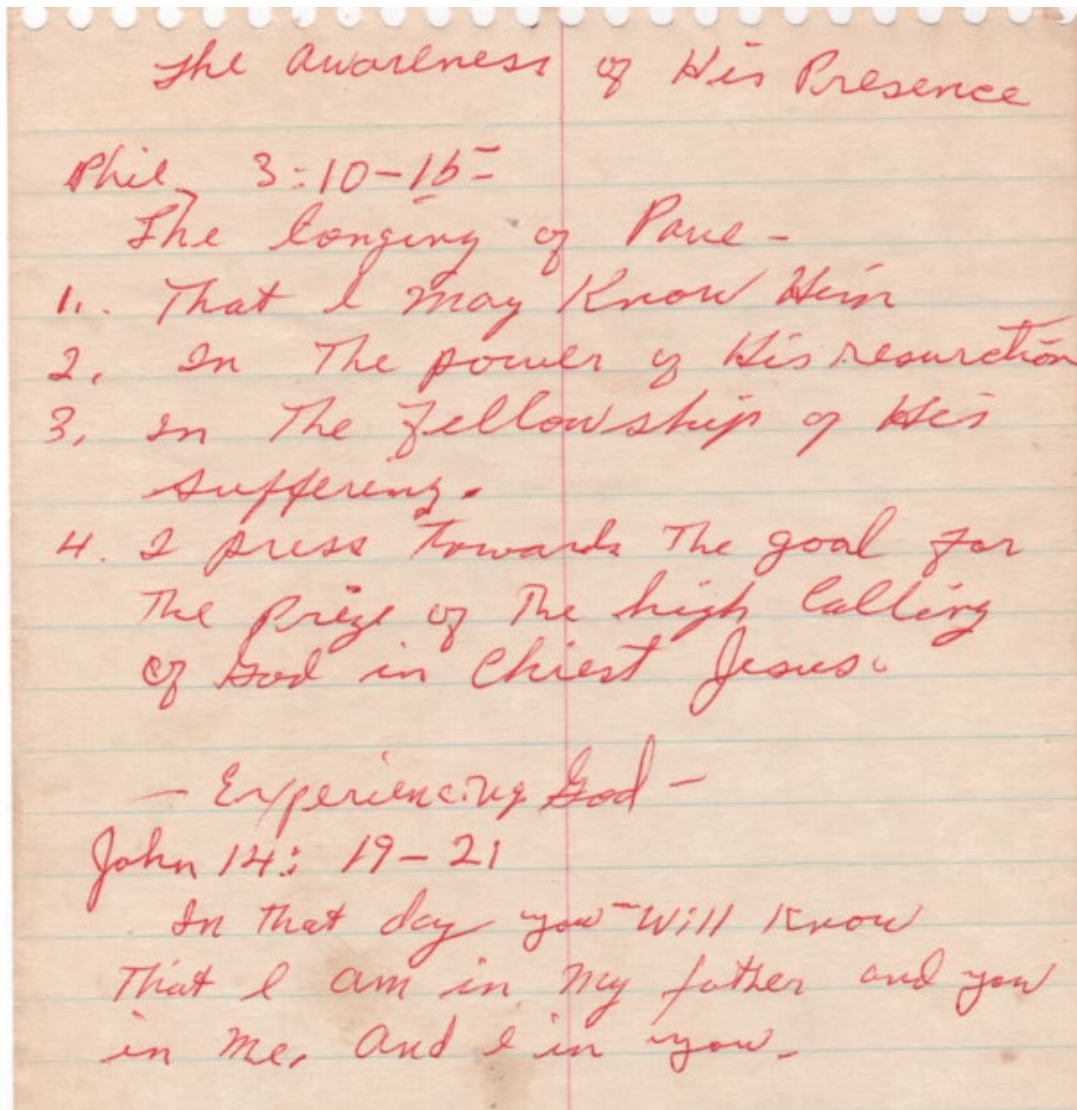 The Awareness of His Presence
Phil, 3:10-15
The longing of Paul -
1. That I may Know Him
2. In The power of His resurction
3. In The Fellowship of His
suffering.
4. I press Towards The goal for
The Prize of The high Calling
of God in Christ Jesus.
- Experiencing God -
John 14: 19-21
In That day you will Know
That I am in my father and you
in me, and I in you.